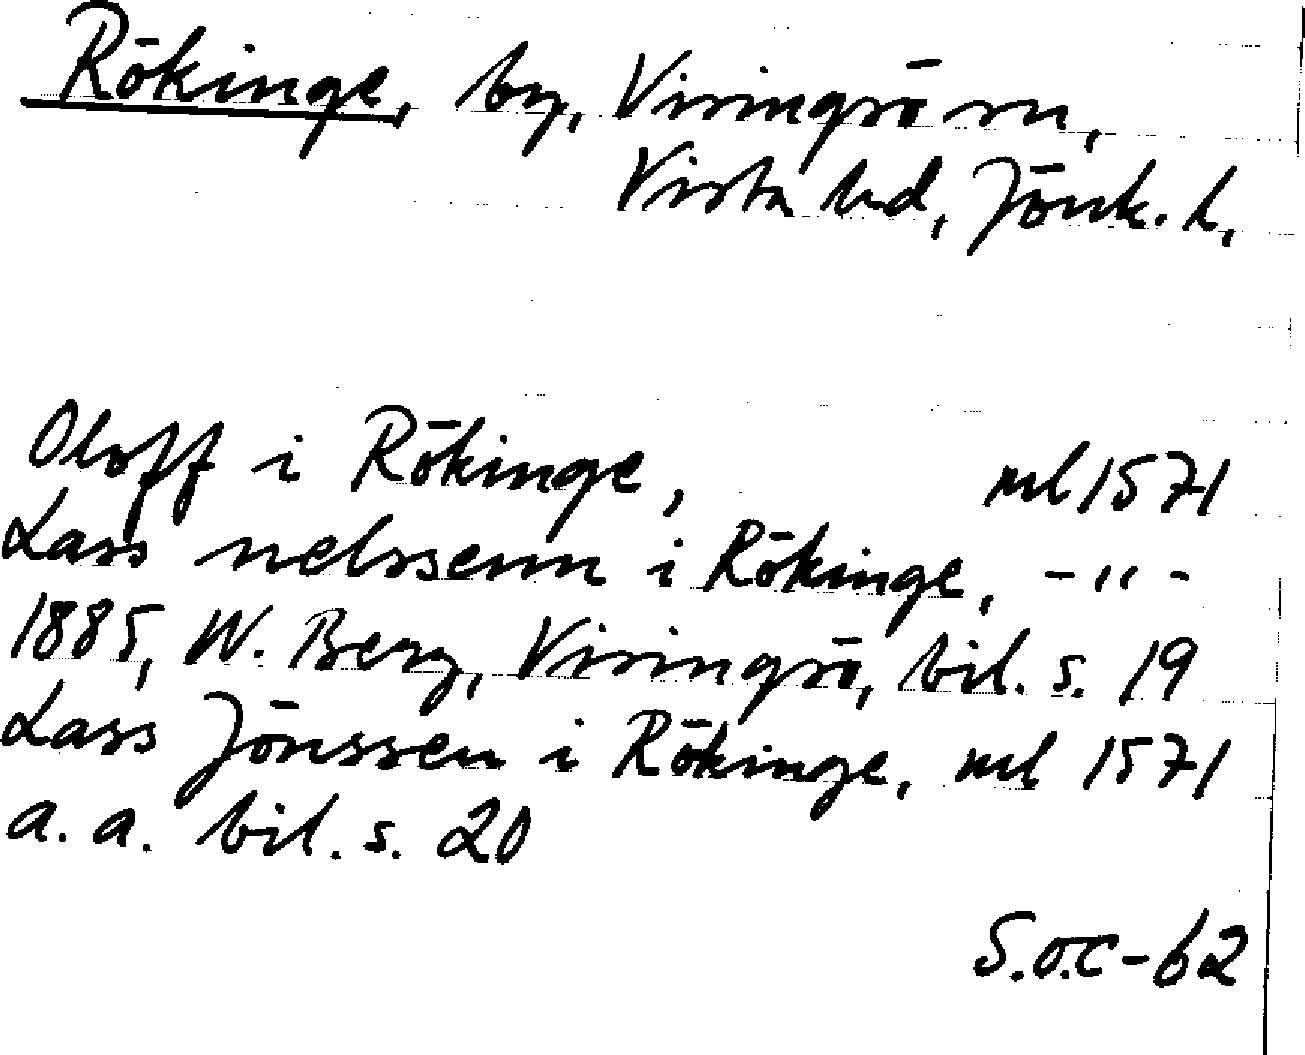 Rökinge, by, Visingsö sn,
Vista hd, Jönk. l,
Oloff i Rökinge, ml 1571
Lass nelssenn i Rökinge, -"-
1885, W. Berg, Visingsö, bil. s. 19
Lass Jönssen i Rökinge, ml 1571
a. a. bil. s. 20
S.O.C-62